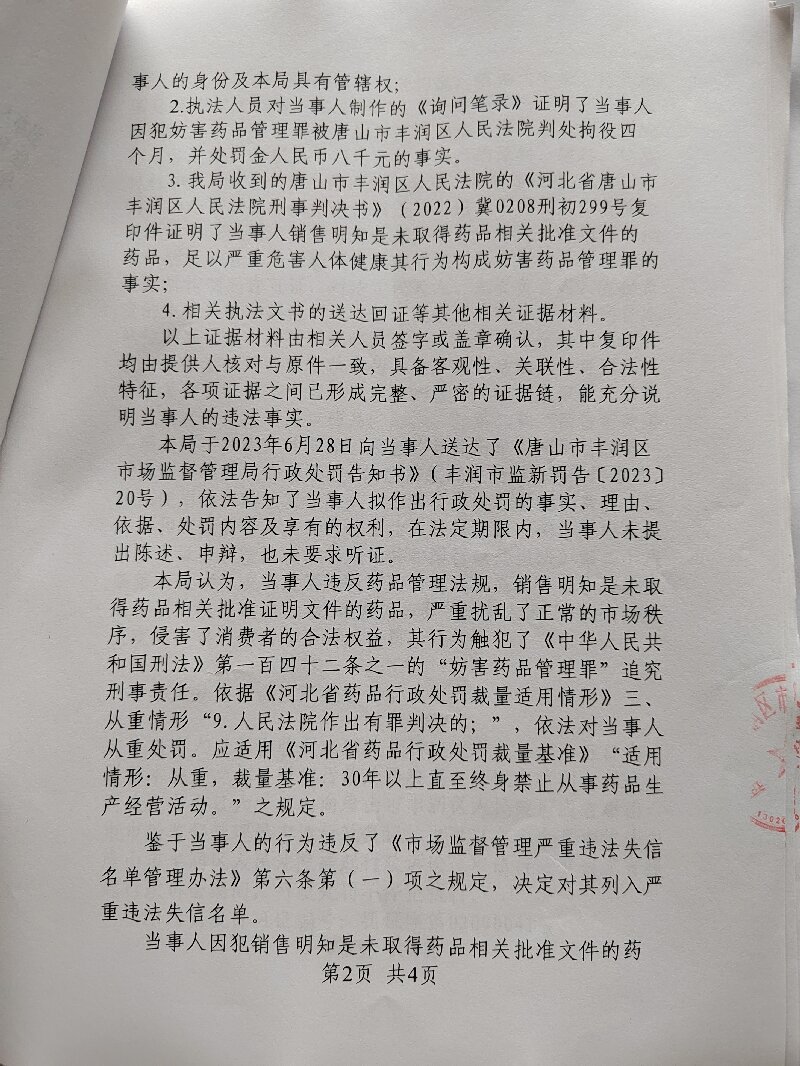 事人的身份及本局具有管辖权；
2.执法人员对当事人制作的《询问笔录》证明了当事人
因犯妨害药品管理罪被唐山市丰润区人民法院判处拘役四
个月，并处罚金人民币八千元的事实。
3. 我局收到的唐山市丰润区人民法院的《河北省唐山市
丰润区人民法院刑事判决书》（2022）冀0208刑初299号复
印件证明了当事人销售明知是未取得药品相关批准文件的
药品，足以严重危害人体健康其行为构成妨害药品管理罪的
事实；
4. 相关执法文书的送达回证等其他相关证据材料。
以上证据材料由相关人员签字或盖章确认，其中复印件
均由提供人核对与原件一致，具备客观性、关联性、合法性
特征，各项证据之间已形成完整、严密的证据链，能充分说
明当事人的违法事实。
本局于2023年6月28日向当事人送达了《唐山市丰润区
市场监督管理局行政处罚告知书》（丰润市监新罚告〔2023〕
20号），依法告知了当事人拟作出行政处罚的事实、理由、
依据、处罚内容及享有的权利，在法定期限内，当事人未提
出陈述、申辩，也未要求听证。
本局认为，当事人违反药品管理法规，销售明知是未取
得药品相关批准证明文件的药品，严重扰乱了正常的市场秩
序，侵害了消费者的合法权益，其行为触犯了《中华人民共
和国刑法》第一百四十二条之一的“妨害药品管理罪”追究
刑事责任。依据《河北省药品行政处罚裁量适用情形》三、
从重情形“9.人民法院作出有罪判决的；”，依法对当事人
从重处罚。应适用《河北省药品行政处罚裁量基准》“适用
情形：从重，裁量基准：30年以上直至终身禁止从事药品生
产经营活动。”之规定。
鉴于当事人的行为违反了《市场监督管理严重违法失信
名单管理办法》第六条第（一）项之规定，决定对其列入严
重违法失信名单。
当事人因犯销售明知是未取得药品相关批准文件的药
第2页 共4页
13026